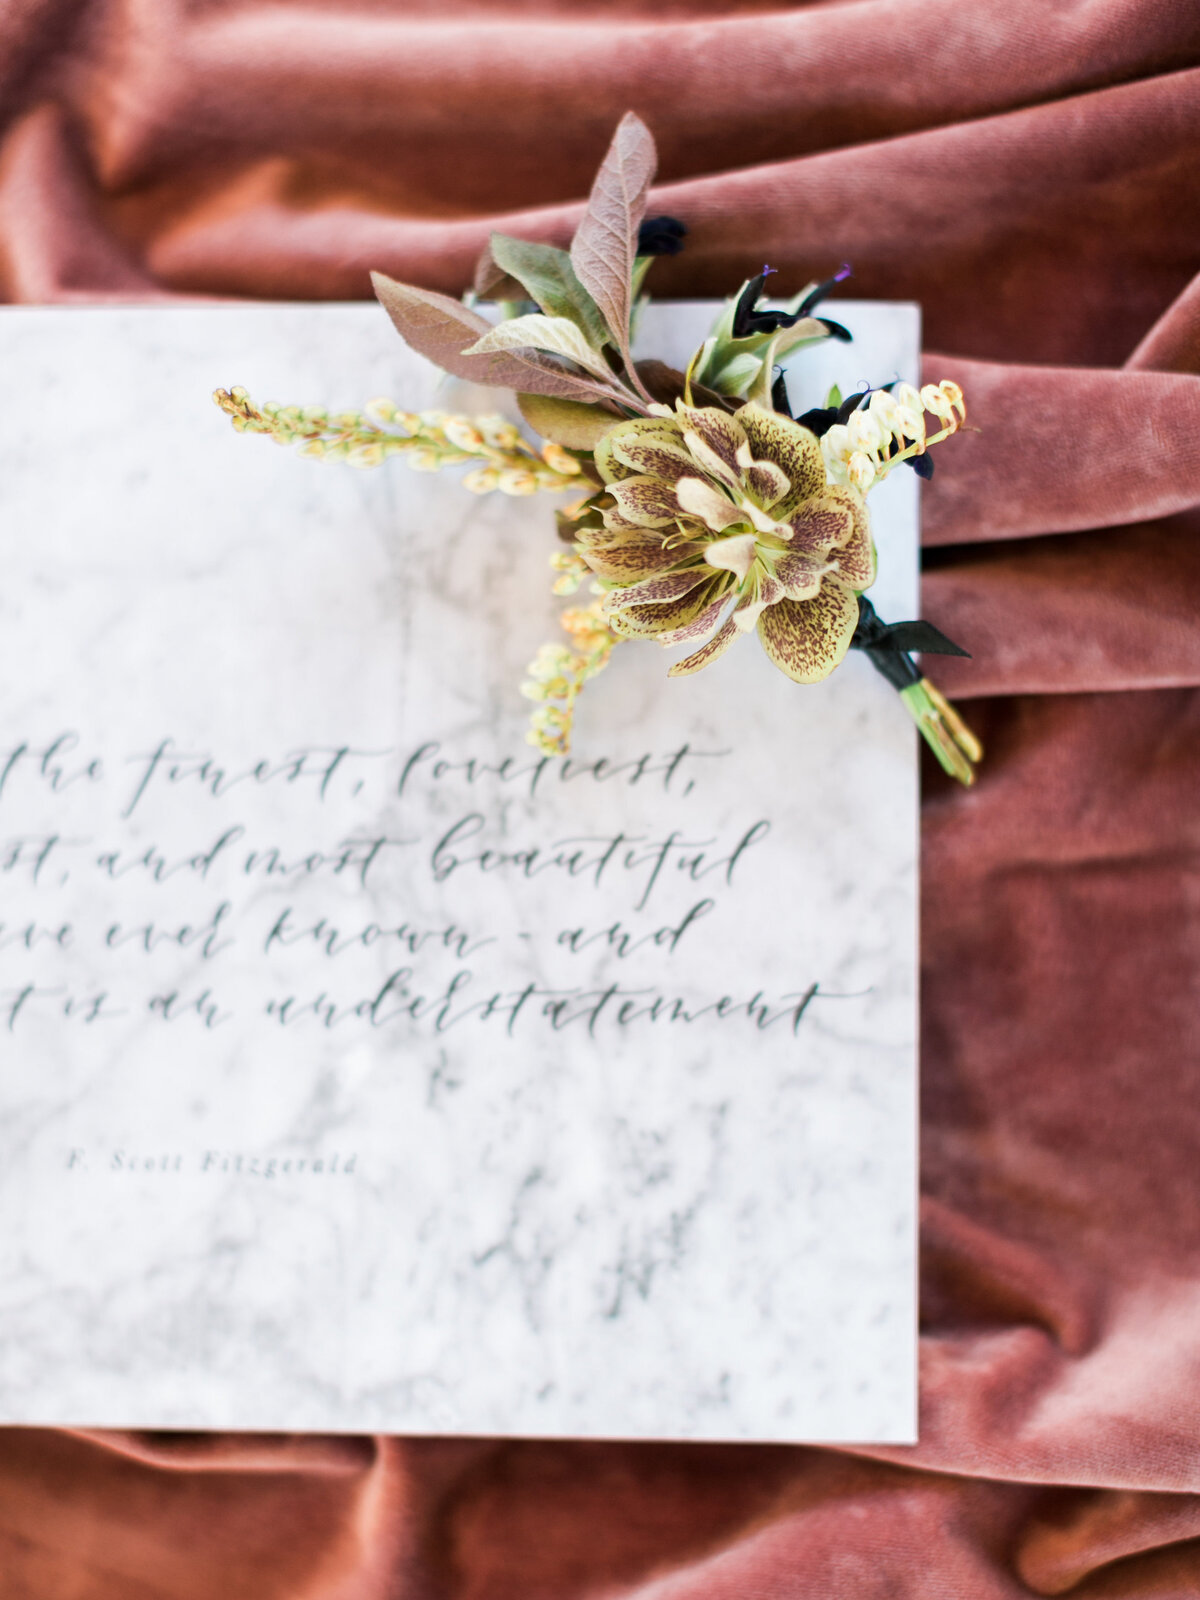 the finest, loveliest,
st, and most beautiful
ve ever known - and
t is an understatement
F. Scott Fitzgerald